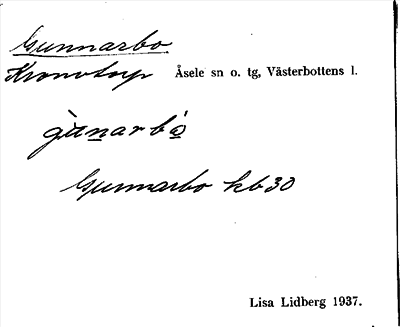 Gunnarbo
Kronotorp Åsele sn o. tg, Västerbottens l.
gùnarbó
Gunnarbo kb 30
Lisa Lidberg 1937.